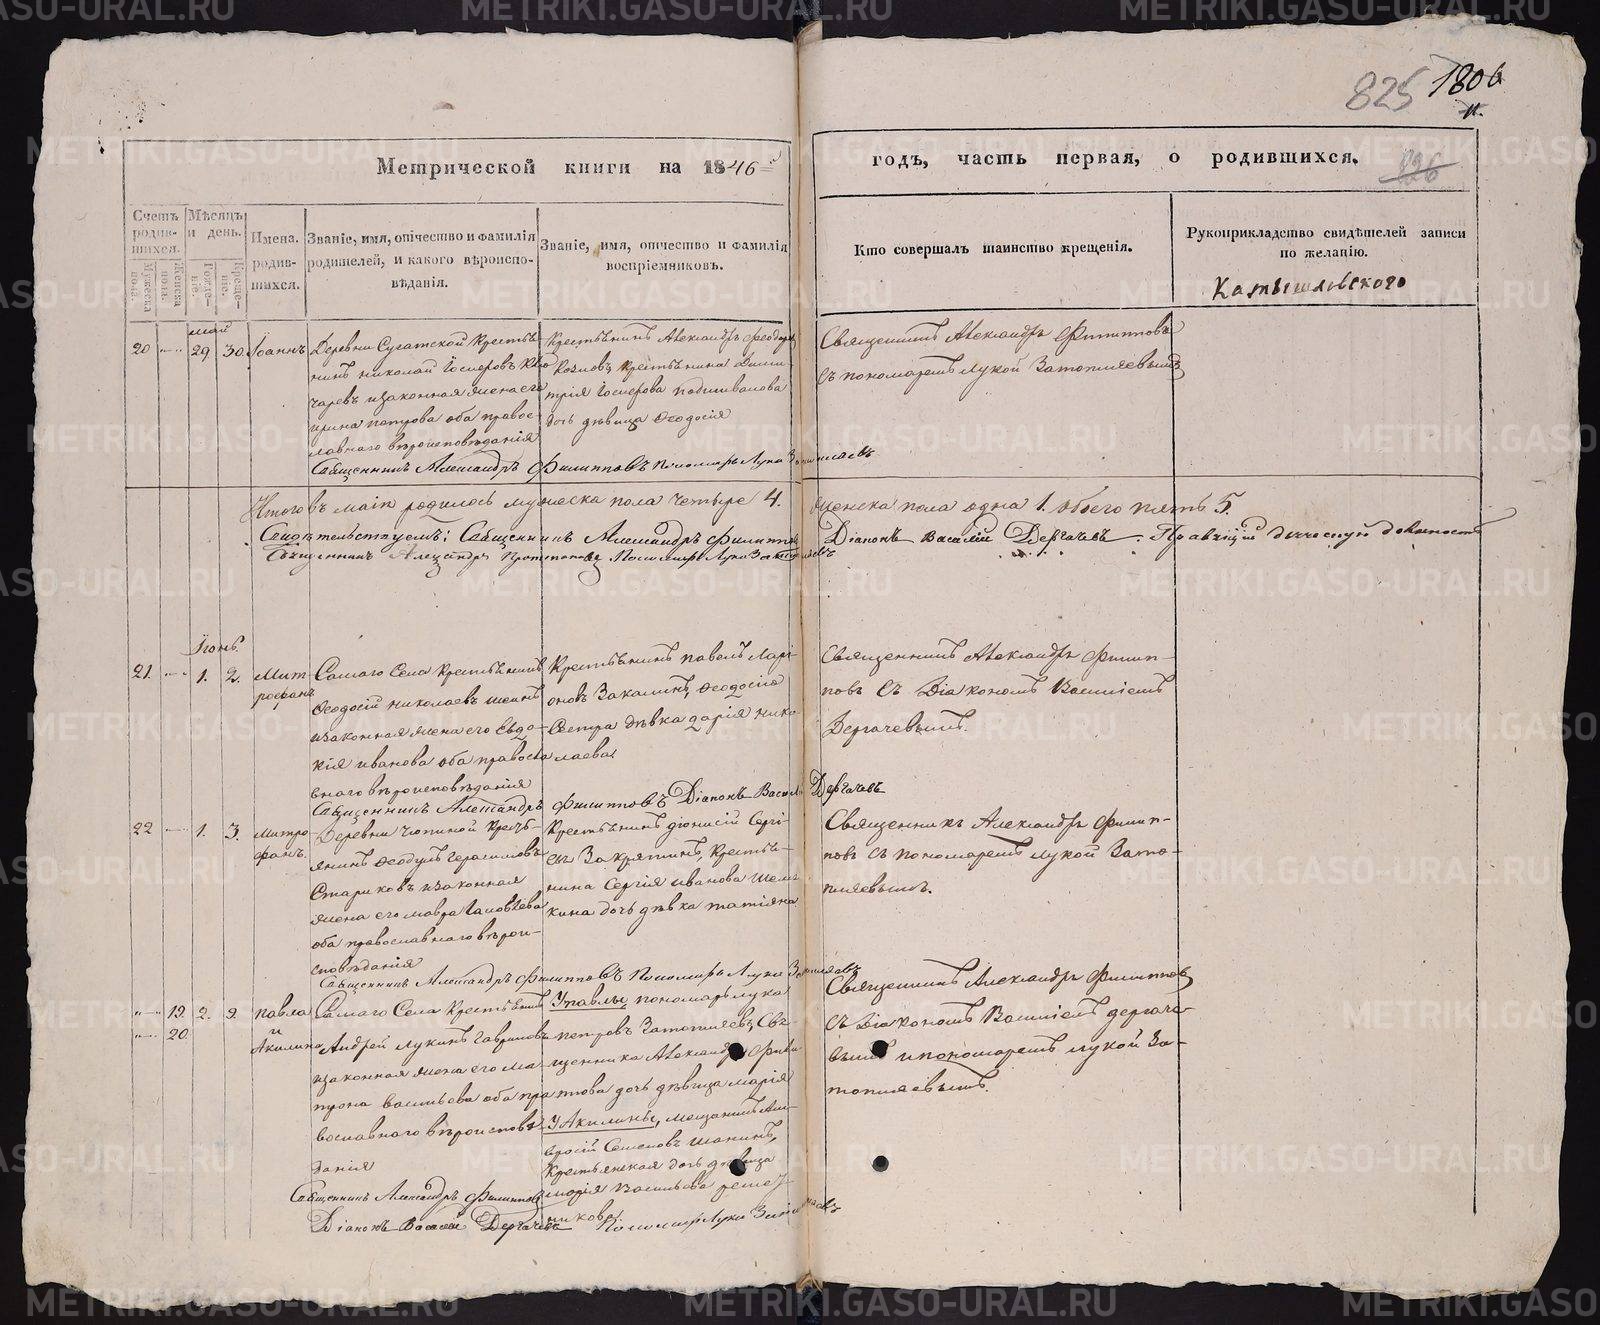 825 1806
Метрической книги на 1846й
годъ, часть первая, о родившихся.
826
Счетъ родившихся.
Мужеска пола.
Женска пола.
Мѣсяцъ и день.
Рожденіе.
Крещеніе.
Имена родившихся.
Званіе, имя, отчество и фамилія родителей, и какого вѣроисповѣданія.
Званіе, имя, отчество и фамилія воспріемниковъ.
Кто совершалъ таинство крещенія.
Рукоприкладство свидѣтелей записи по желанію.
Камышловского
май
20 29 30 Іоаннъ
Деревни Сугатской Крестья-
нинъ николай
изаконная жена его
ирина петрова оба правос-
лавнаго вѣроисповѣданія
Крестьянинъ Александръ феодор
Козловъ, крестьянина Дими-
трія подшивалова
дочь дѣвица Ѳеодосія
Священникъ Александръ Филипповъ
съ пономаремъ Лукой Затопляевымъ
Священникъ Александръ Филипповъ Пономарь Лука Затопляевъ
Итого въ маiѣ родилось мужеска пола четыре 4. женска пола одна 1. обоего пять 5.
Свидѣтельствуемъ: Священникъ Александръ Филипповъ Діаконъ Василій Дергачевъ. Правящій должность
Священникъ Пономарь Лука Затопляевъ
Іюнь
21. 1. 2. Мит-
рофанъ
Самаго Села Крестьянинъ
Ѳеодосій николаевъ шеинъ
изаконная жена его Евдо-
кія иванова оба правосла
внаго вѣроисповѣданія
Крестьянинъ павелъ Ларі-
оновъ Закалинъ, Ѳеодосія
Сестра дѣвка дарія нико-
лаева
Священникъ Александръ Филип-
повъ съ Діакономъ Василіемъ
Дергачевымъ.
Священникъ Александръ Филипповъ Діаконъ Василій Дергачевъ
22 1. 3. митро-
фанъ.
Деревни Чюпиной Кресть-
янинъ Ѳеодулъ Герасимовъ
Стариковъ изаконная
жена его мавра Іаковлева
оба православнаго вѣрои-
сповѣданія
Крестьянинъ діонисій Сергі-
евъ Закрятинъ, Крестья-
нина Сергія иванова шемя-
кина дочь дѣвка татіяна
Священникъ Александръ Филип-
повъ съ пономаремъ лукой Зато-
пляевымъ.
Священникъ Александръ Филипповъ Пономарь Лука Затопляевъ
19 2. 9. павла
20. и Акилина
Самаго Села Крестьянинъ
Андрей лукинъ Гавриловъ
изаконная жена его ма-
трона васильева оба пра-
вославнаго вѣроисповѣ-
данія
У павлы, пономарь лука
петровъ Затопляевъ, Свя-
щенника Александра Фили-
ппова дочь дѣвица марія
У Акилины, мещанинъ Ам-
вросій Семеновъ шанинъ,
Крестьянская дочь дѣвица
марія Васильева решет-
никова
Священникъ Александръ Филипповъ
съ Діакономъ Василіемъ дергаче-
вымъ ипономаремъ лукой За-
топляевымъ.
Священникъ Александръ Филипповъ
Діаконъ Василій Дергачевъ Пономарь Лука Затопляевъ